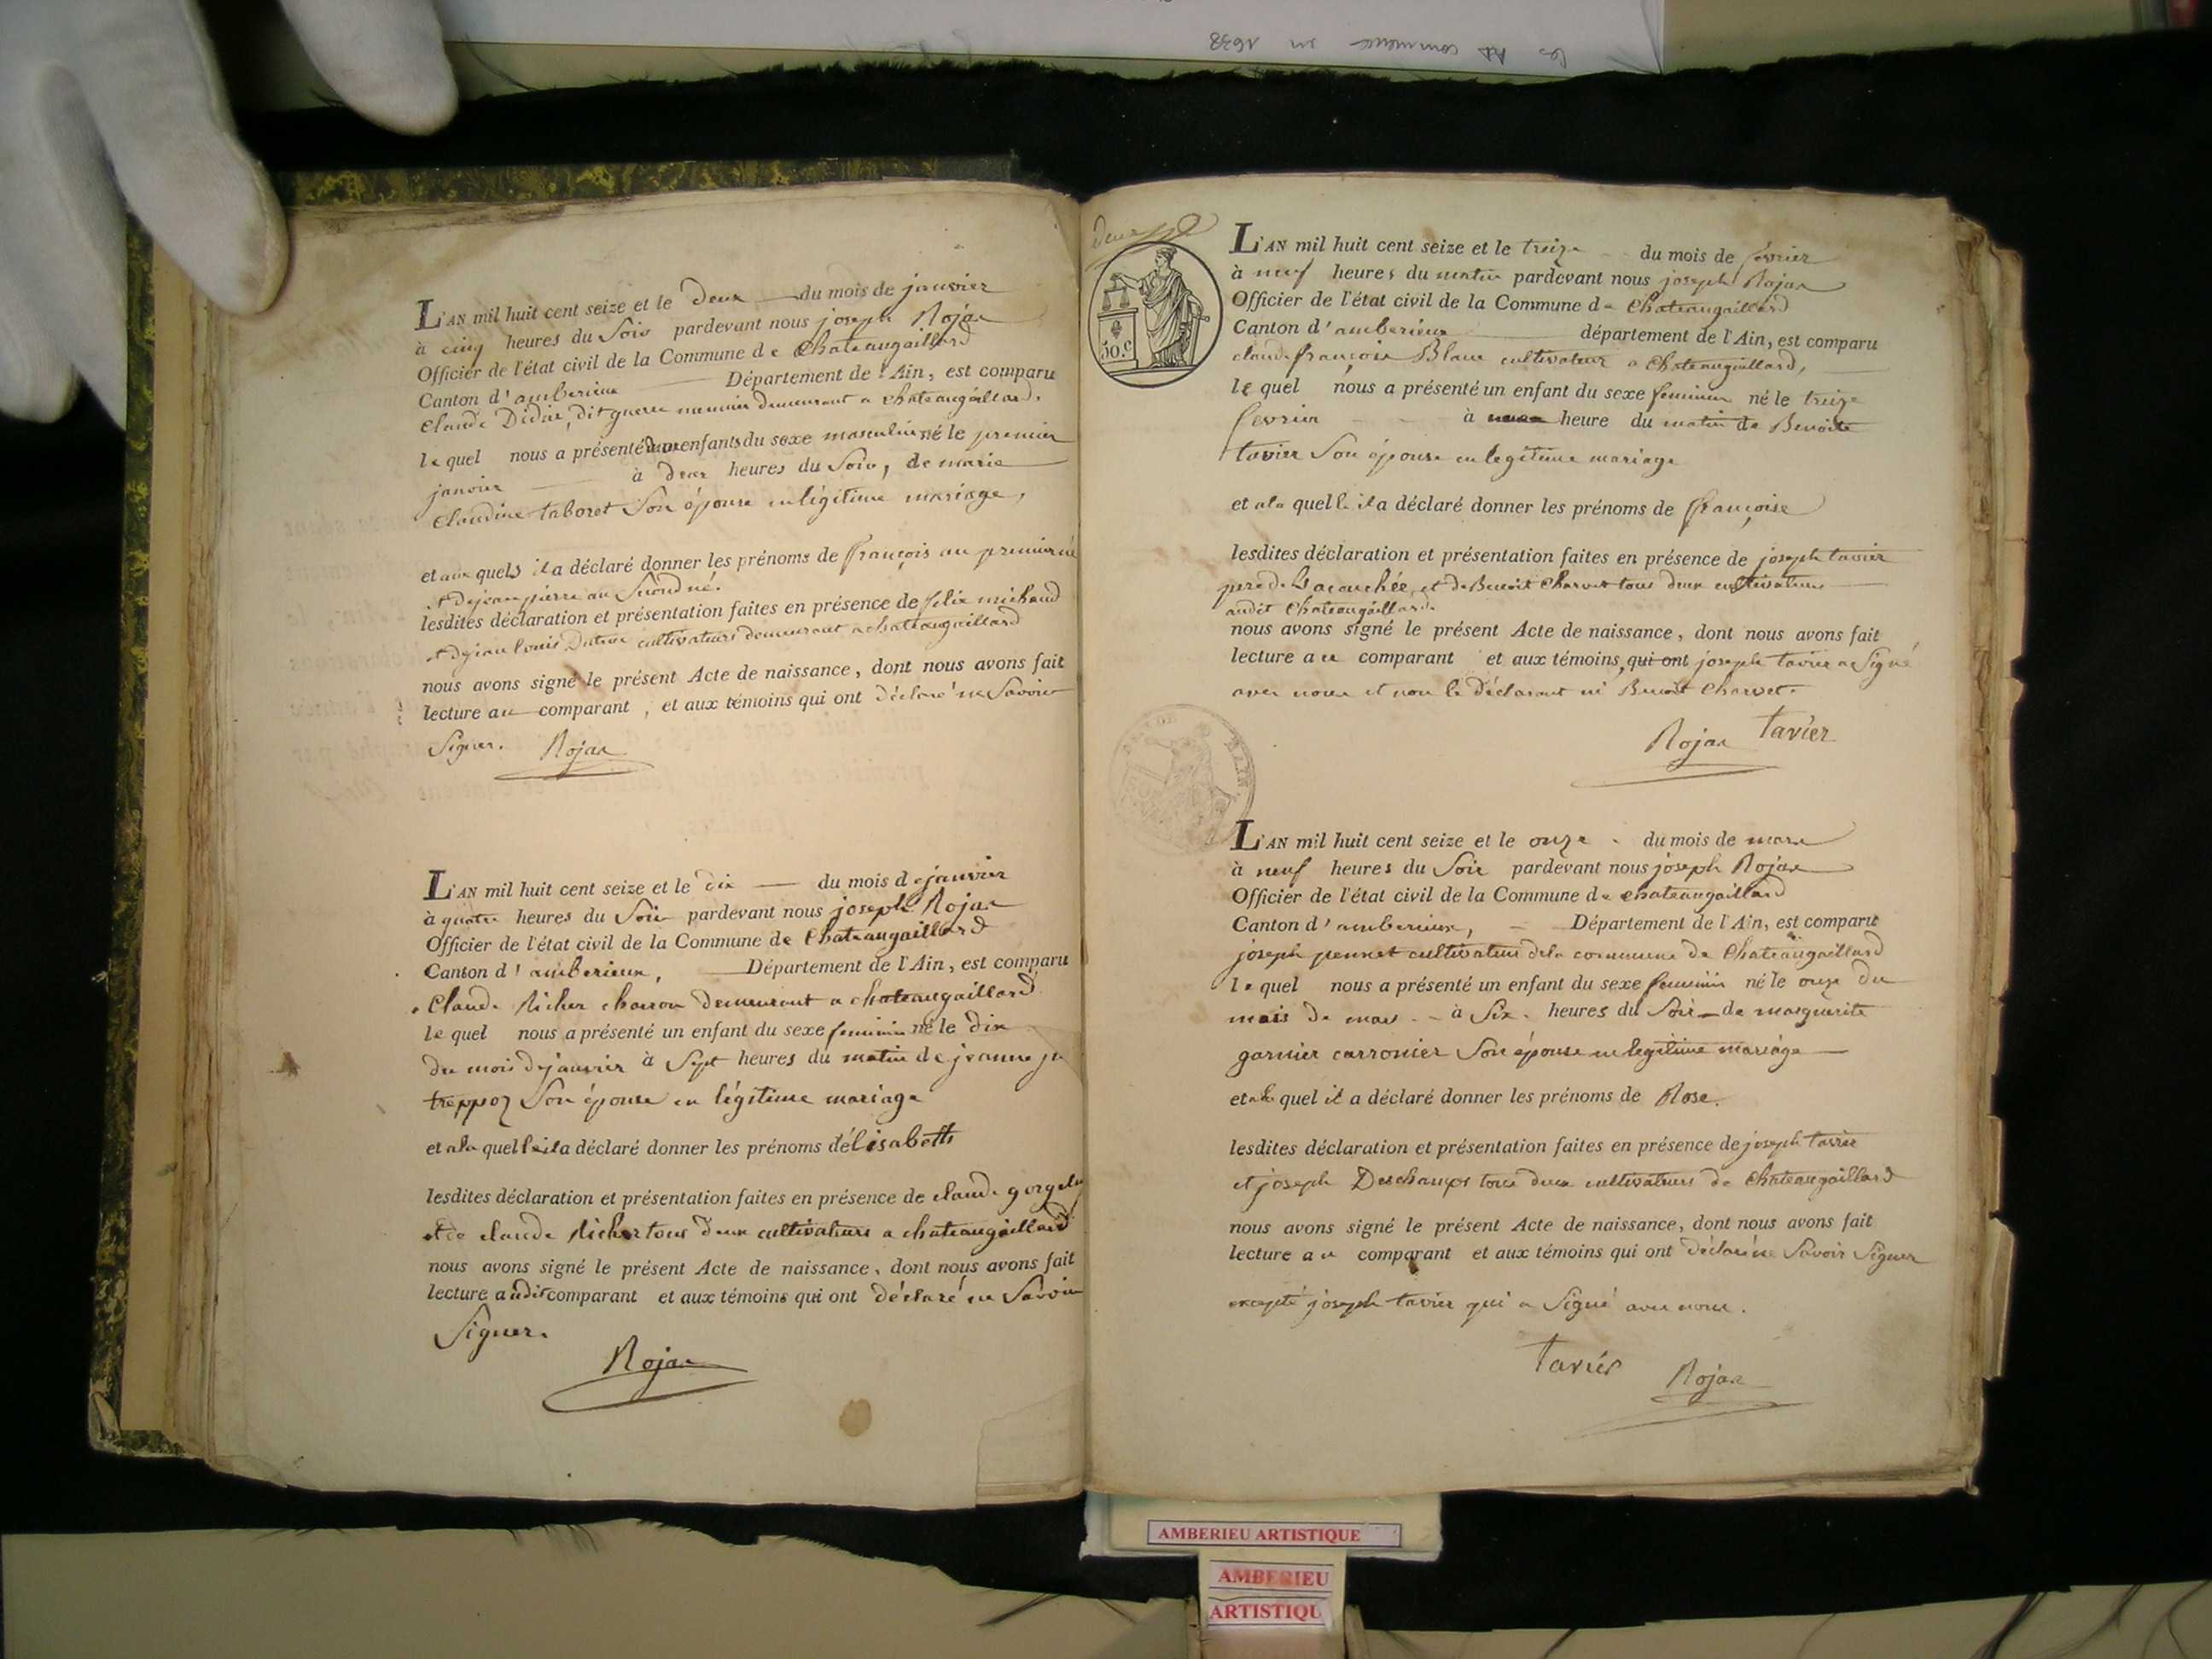 les commence en 1638
L'AN mil huit cent seize et le deux du mois de janvier
à cinq heures du Soir pardevant nous joseph Rojas
Officier de l'état civil de la Commune de Chateaugaillard
Canton d'amberieux Département de l'Ain, est comparu
Claude Didier, dit guerre demeurant a chateaugaillard.
le quel nous a présenté deux enfants du sexe masculin né le premier
janvier à deux heures du Soir, de marie
Claudine taboret Son épouse en légitime mariage,
et aux quels il a déclaré donner les prénoms de françois au premier né
et dejean pierre au Second né.
lesdites déclaration et présentation faites en présence de felix michaud
et dejean Louis cultivateurs demeurant a chateaugaillard
nous avons signé le présent Acte de naissance, dont nous avons fait
lecture au comparant, et aux témoins qui ont déclaré ne Savoir
Signer. Rojas
L'AN mil huit cent seize et le dix du mois de janvier
à quatre heures du Soir pardevant nous joseph Rojas
Officier de l'état civil de la Commune de Chateaugaillard
Canton d'amberieux, Département de l'Ain, est comparu
Claude Richer charron demeurant a chateaugaillard
le quel nous a présenté un enfant du sexe feminin né le dix
du mois dejanvier à Sept heures du matin de jeanne
treppoz Son épouse en légitime mariage
et ala quelle il a déclaré donner les prénoms délisabeth
lesdites déclaration et présentation faites en présence de claude
et de claude Richer tous deux cultivateurs a chateaugaillard
nous avons signé le présent Acte de naissance, dont nous avons fait
lecture audit comparant et aux témoins qui ont déclaré ne Savoir
Signer.
Rojas
50.c
L'AN mil huit cent seize et le treize du mois de fevrier
à neuf heures du matin pardevant nous joseph Rojas
Officier de l'état civil de la Commune de Chateaugaillard
Canton d'amberieux département de l'Ain, est comparu
claude françois Blanc cultivateur a Chateaugaillard,
le quel nous a présenté un enfant du sexe feminin né le treize
fevrier à heure du matin de Benoite
tavier Son épouse en legitime mariage
et ala quelle il a déclaré donner les prénoms de françoise
lesdites déclaration et présentation faites en présence de joseph tavier
pere de Lacouchée, et de Benoit Charvet tous deux cultivateurs
audit Chateaugaillard.
nous avons signé le présent Acte de naissance, dont nous avons fait
lecture au comparant et aux témoins, qui ont joseph tavier a Signé
avec nous et non le déclarant ni Benoit Charvet.
Rojas Tavier
L'AN mil huit cent seize et le onze du mois de mars
à neuf heures du Soir pardevant nous joseph Rojas
Officier de l'état civil de la Commune de chateaugaillard
Canton d'amberieux, Département de l'Ain, est comparu
joseph pennet cultivateur dela commune de Chateaugaillard
le quel nous a présenté un enfant du sexe feminin né le onze du
mois de mars à Six heures du Soir de marguerite
garnier carronier Son épouse en legitime mariage
et ala quel il a déclaré donner les prénoms de Rose.
lesdites déclaration et présentation faites en présence de joseph tavier
et joseph Deschamps tous deux cultivateurs de Chateaugaillard
nous avons signé le présent Acte de naissance, dont nous avons fait
lecture au comparant et aux témoins qui ont déclaré ne Savoir Signer
excepté joseph tavier qui a Signé avec nous.
Tavier Rojas
AMBERIEU ARTISTIQUE
AMBERIEU
ARTISTIQU